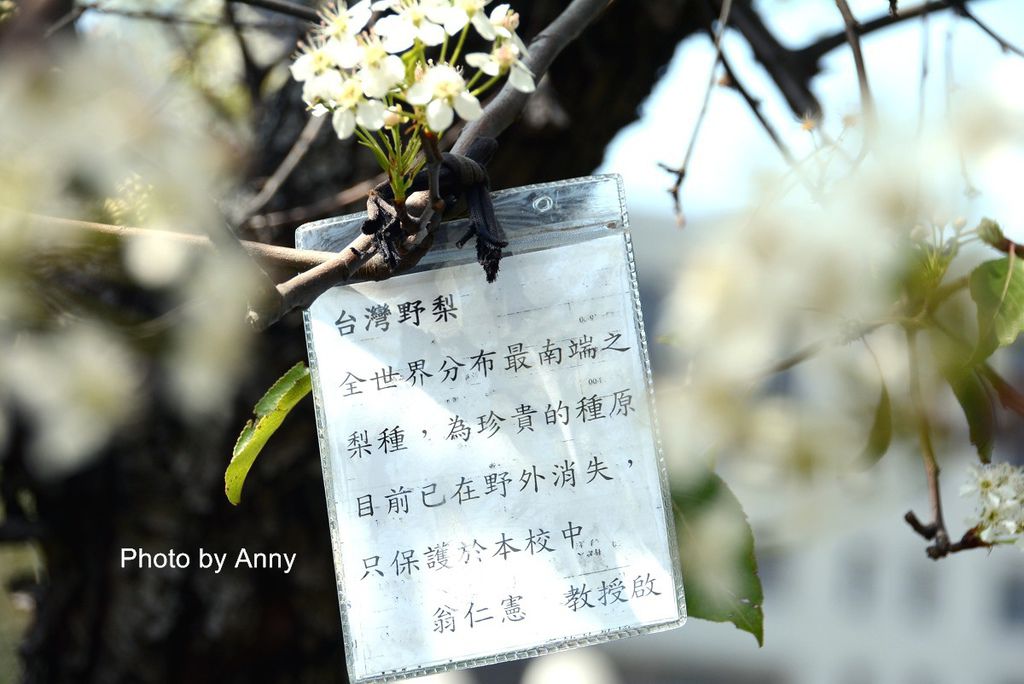 台灣野梨
全世界分布最南端之
梨種，為珍貴的種原
目前已在野外消失，
只保護於本校中
翁仁憲 教授啟
Photo by Anny